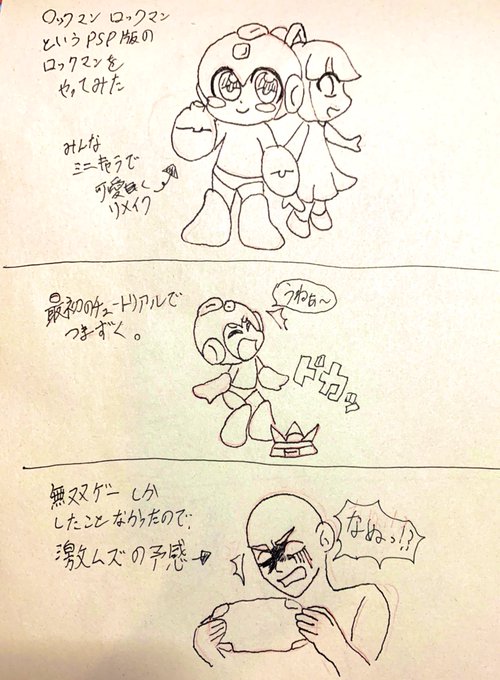 ロックマン ロックマン
というPSP版の
ロックマンを
やってみた
みんな
ミニキャラで
可愛く
リメイク
最初のチュートリアルで
つまずく。
うわぁ〜
ドカッ
無双ゲーしか
したことなかったので、
激ムズの予感
なぬっ!?